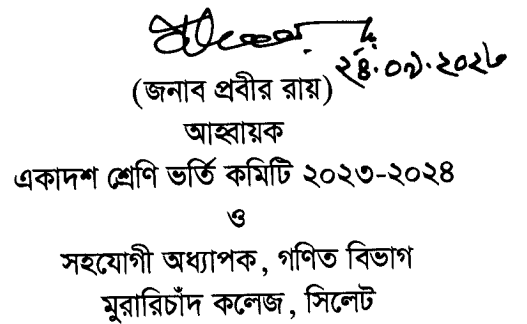 ২৪.০৯.২০২৩
(জনাব প্রবীর রায়)
আহ্বায়ক
একাদশ শ্রেণি ভর্তি কমিটি ২০২৩-২০২৪
ও
সহযোগী অধ্যাপক, গণিত বিভাগ
মুরারিচাঁদ কলেজ, সিলেট